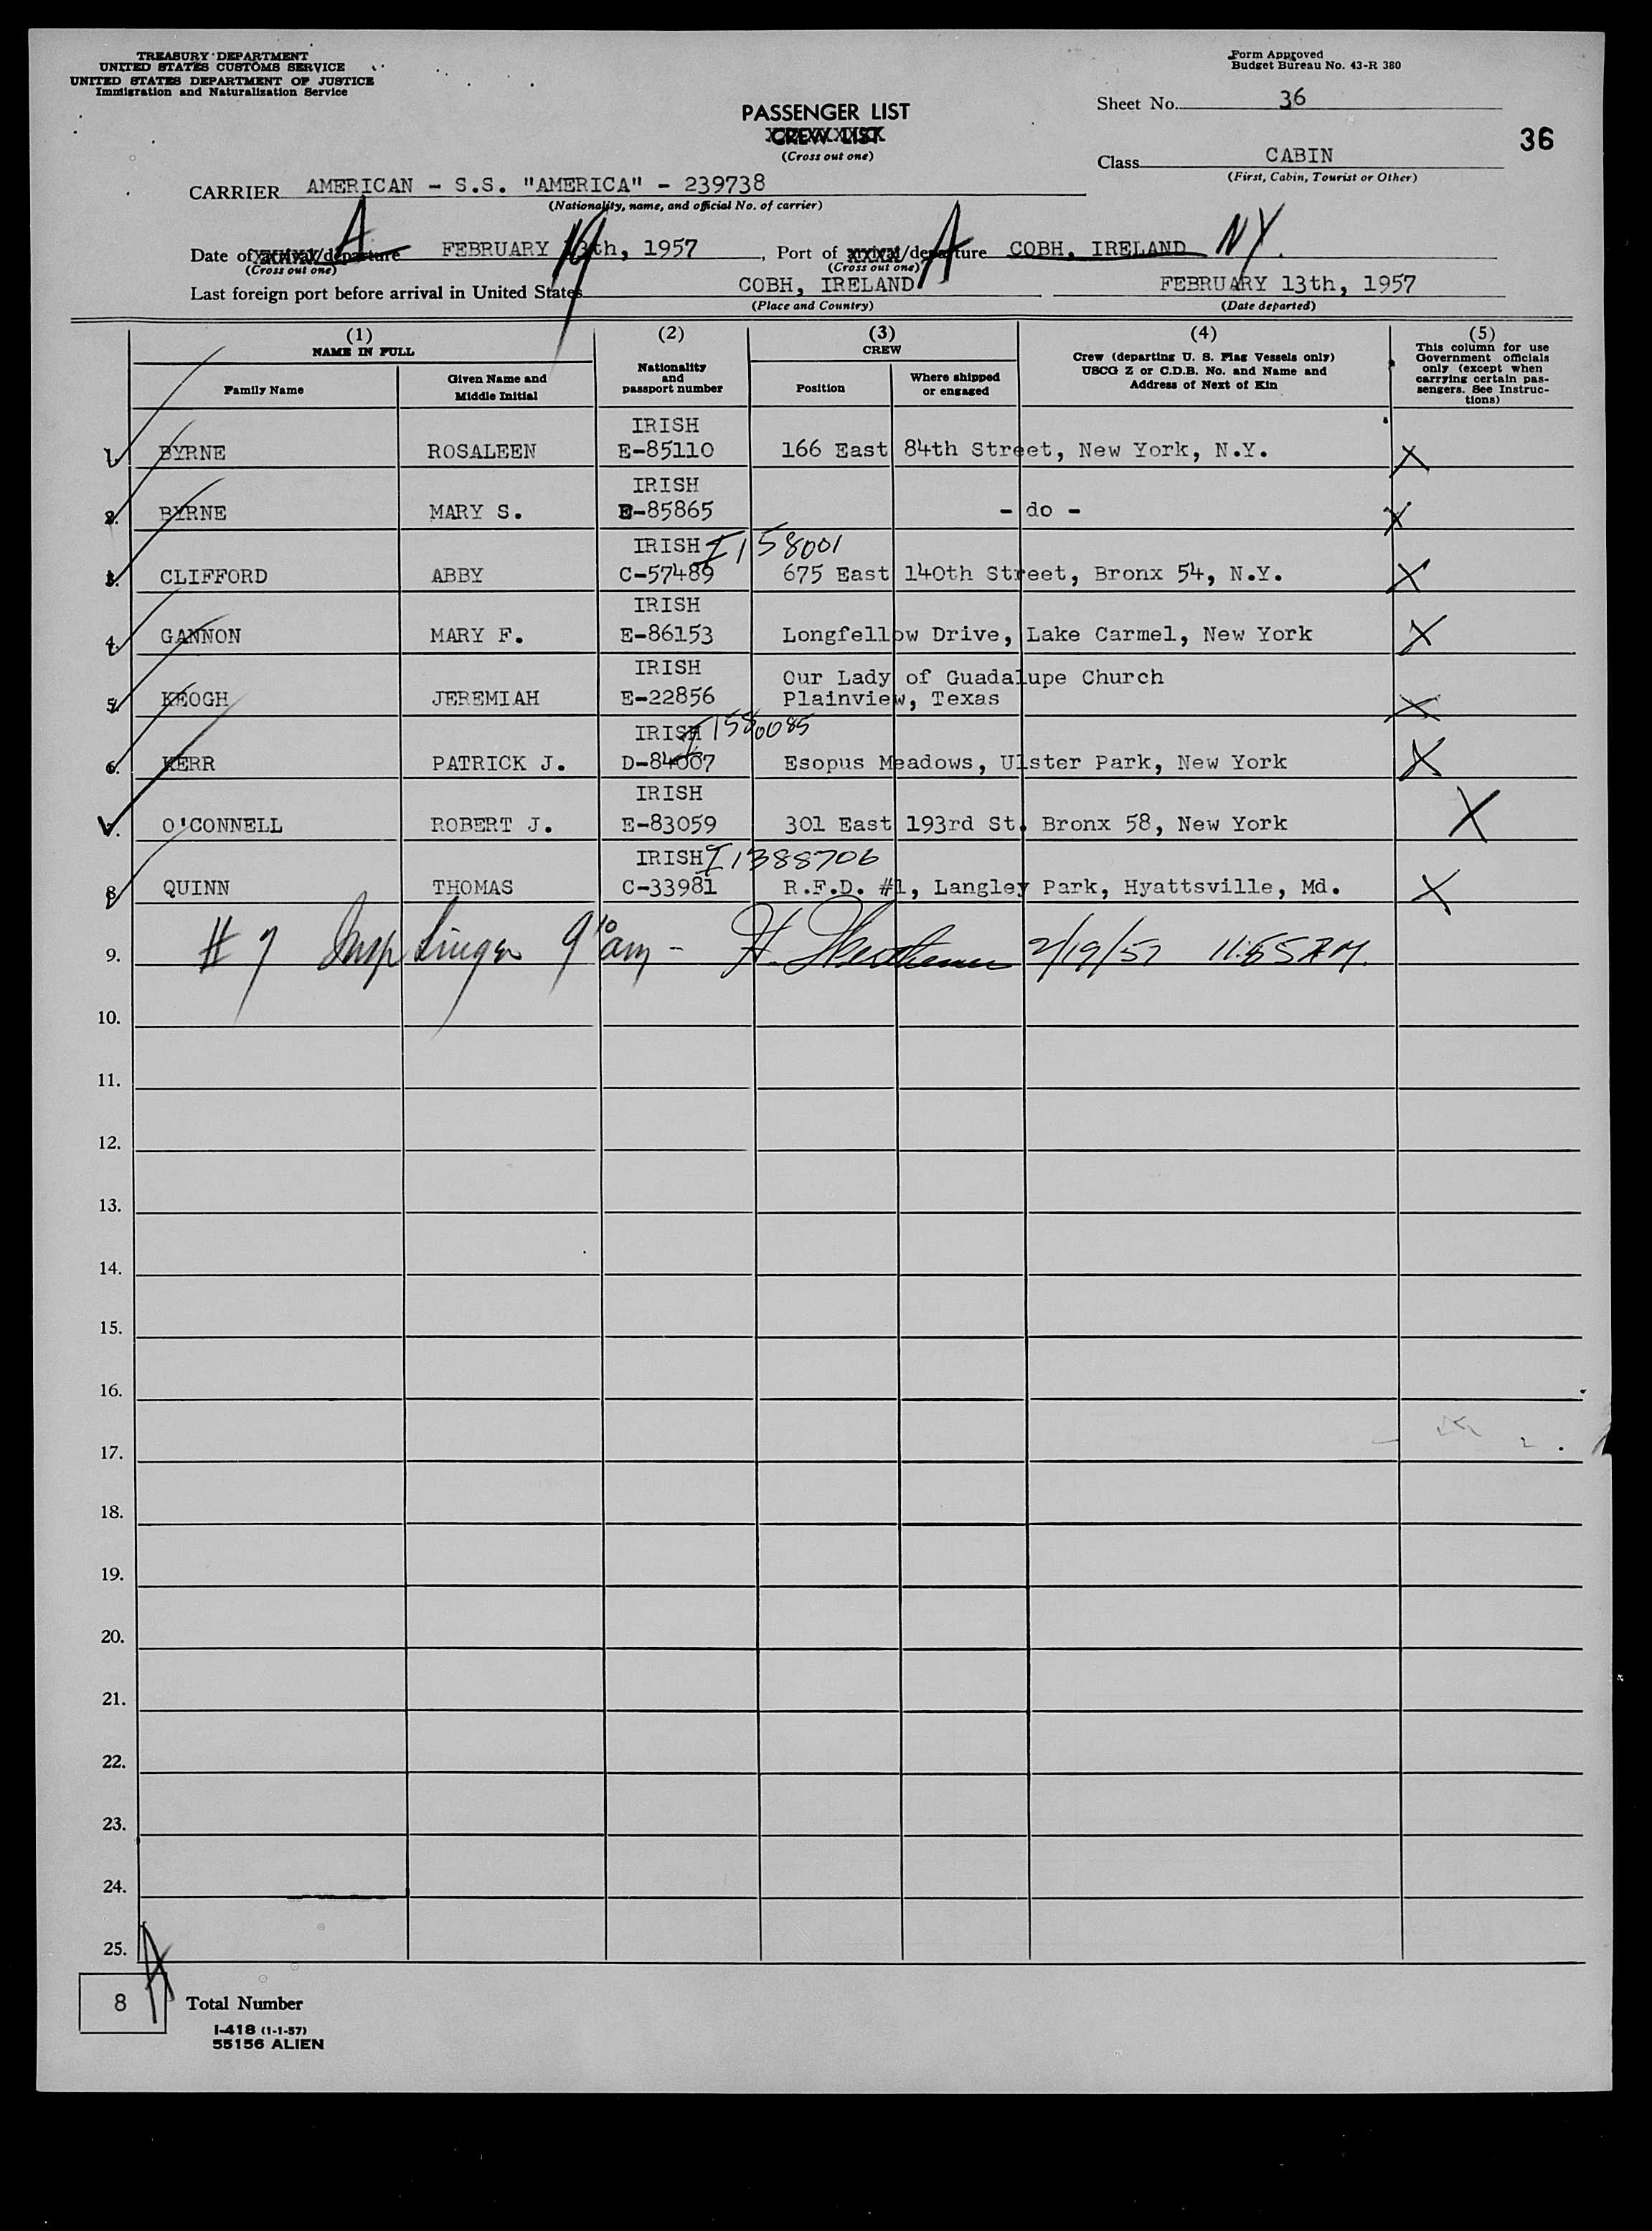 TREASURY DEPARTMENT
UNITED STATES CUSTOMS SERVICE
UNITED STATES DEPARTMENT OF JUSTICE
Immigration and Naturalization Service
Form Approved
Budget Bureau No. 43-R 380
Sheet No. 36
36
PASSENGER LIST
CREW LIST
(Cross out one)
Class CABIN
(First, Cabin, Tourist or Other)
CARRIER AMERICAN - S.S. "AMERICA" - 239738
(Nationality, name, and official No. of carrier)
Date of arrival/departure A FEBRUARY 13th, 1957, Port of arrival/departure A COBH, IRELAND NY
(Cross out one) 19 (Cross out one)
Last foreign port before arrival in United States COBH, IRELAND FEBRUARY 13th, 1957
(Place and Country) (Date departed)
(1) NAME IN FULL
Family Name
Given Name and Middle Initial
(2)
Nationality and passport number
(3) CREW
Position
Where shipped or engaged
(4)
Crew (departing U. S. Flag Vessels only)
USCG Z or C.D.B. No. and Name and
Address of Next of Kin
(5)
This column for use
Government officials
only (except when
carrying certain pas-
sengers. See Instruc-
tions)
IRISH
1. BYRNE ROSALEEN E-85110 166 East 84th Street, New York, N.Y. X
IRISH
2. BYRNE MARY S. E-85865 - do - X
IRISH I158001
3. CLIFFORD ABBY C-57489 675 East 140th Street, Bronx 54, N.Y. X
IRISH
4. GANNON MARY F. E-86153 Longfellow Drive, Lake Carmel, New York X
IRISH Our Lady of Guadalupe Church
5. KEOGH JEREMIAH E-22856 Plainview, Texas X
IRISH I1580085
6. KERR PATRICK J. D-84007 Esopus Meadows, Ulster Park, New York X
IRISH
7. O'CONNELL ROBERT J. E-83059 301 East 193rd St. Bronx 58, New York X
IRISH I1388706
8. QUINN THOMAS C-33981 R.F.D. #1, Langley Park, Hyattsville, Md. X
9. # 7 Insp 9 10 am - H. 2/19/57 11:55 AM.
10.
11.
12.
13.
14.
15.
16.
17.
18.
19.
20.
21.
22.
23.
24.
25.
8 Total Number
I-418 (1-1-57)
55156 ALIEN